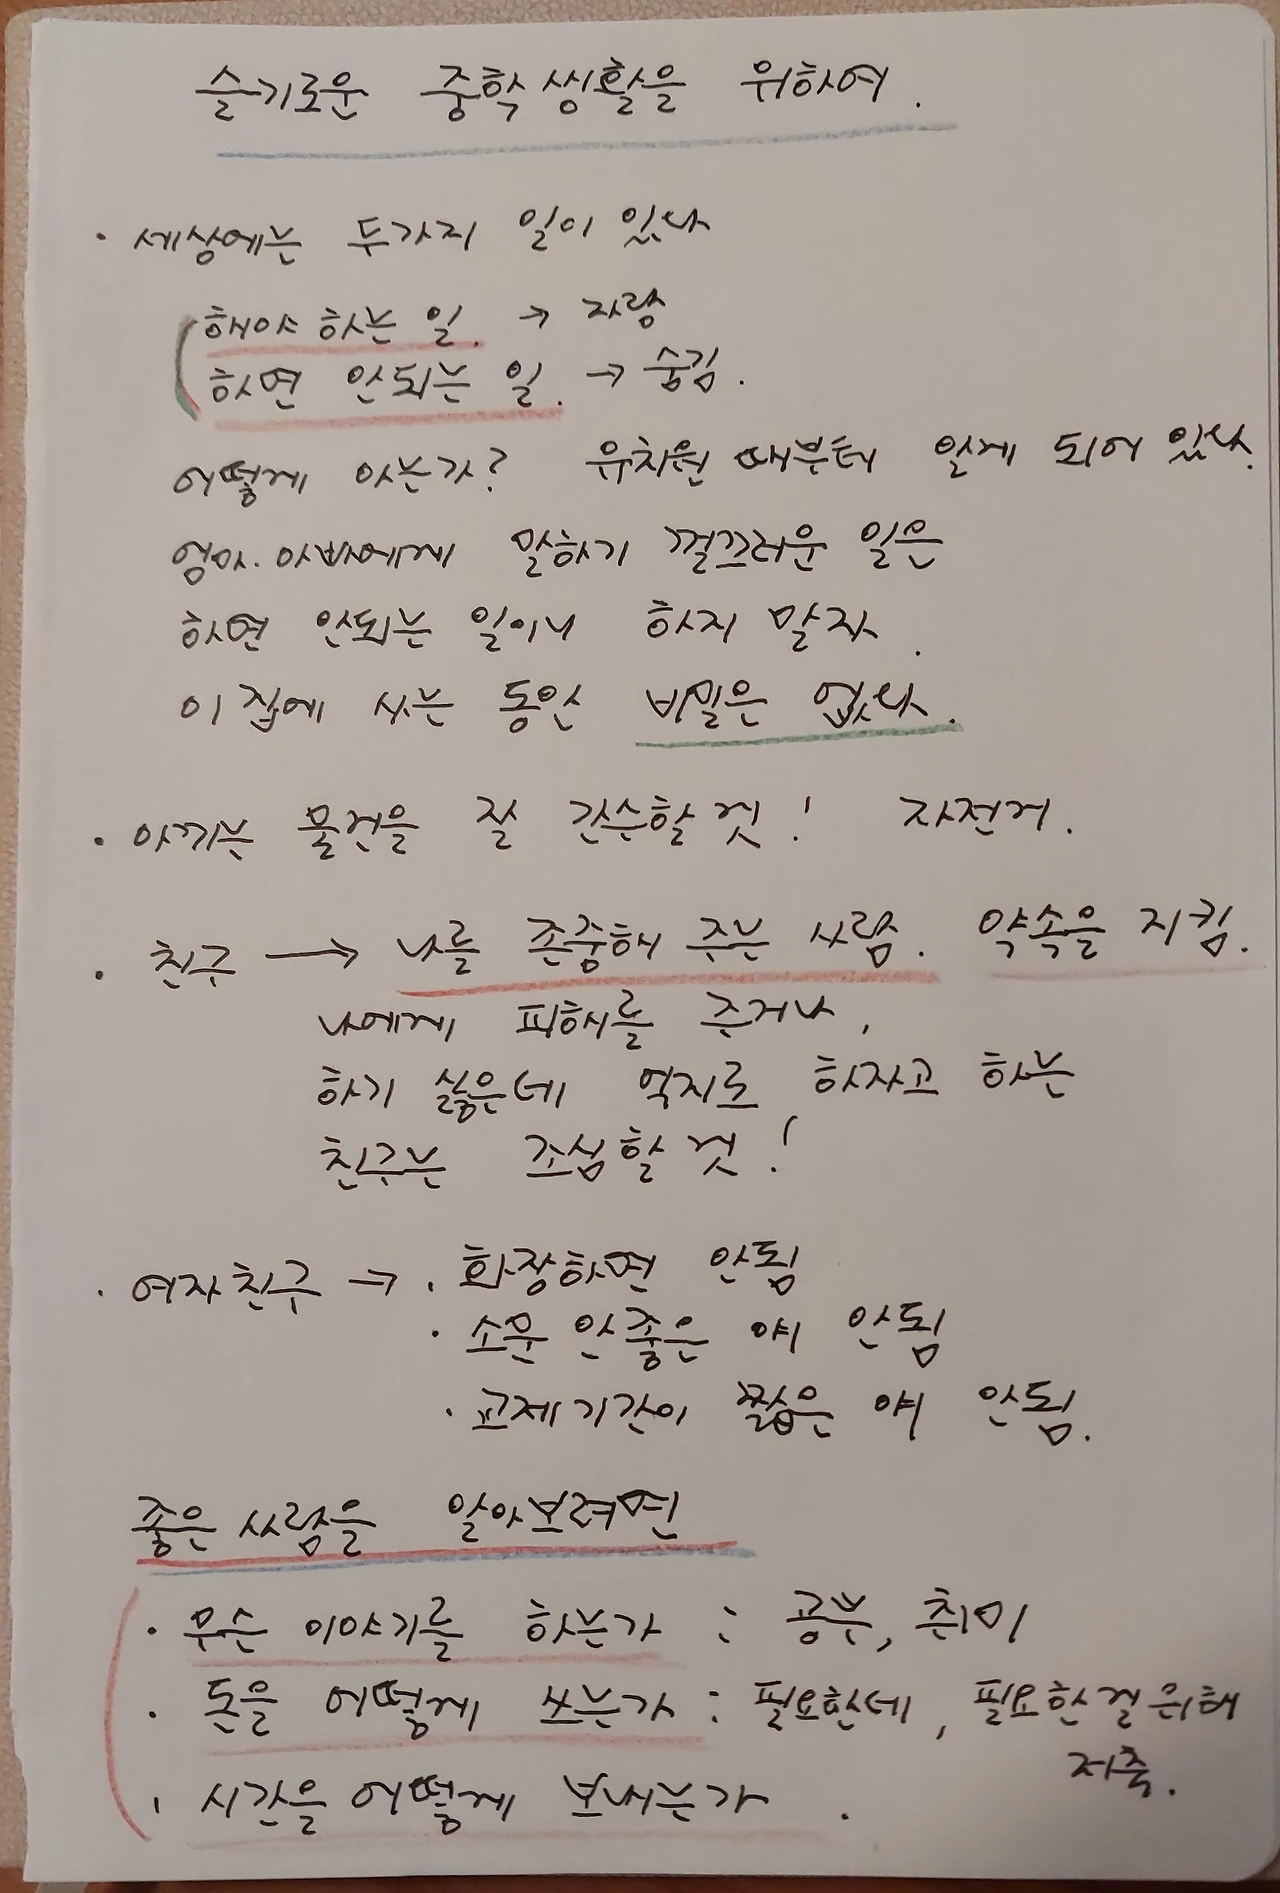 슬기로운 중학생활을 위하여.
· 세상에는 두가지 일이 있다
해야 하는 일. → 자랑
하면 안되는 일. → 숨김.
어떻게 아는가? 유치원 때부터 알게 되어 있다.
엄마.아빠에게 말하기 껄끄러운 일은
하면 안되는 일이니 하지 말자.
이 집에 사는 동안 비밀은 없다.
· 아끼는 물건을 잘 간수할 것! 자전거.
· 친구 → 나를 존중해 주는 사람. 약속을 지킴.
나에게 피해를 주거나,
하기 싫은데 억지로 하자고 하는
친구는 조심할 것!
· 여자친구 → · 화장하면 안됨
· 소문 안좋은 애 안됨
· 교제기간이 짧은 애 안됨.
좋은 사람을 알아보려면
· 무슨 이야기를 하는가 : 공부, 취미
· 돈을 어떻게 쓰는가 : 필요한데, 필요한걸 위해
저축.
· 시간을 어떻게 보내는가.